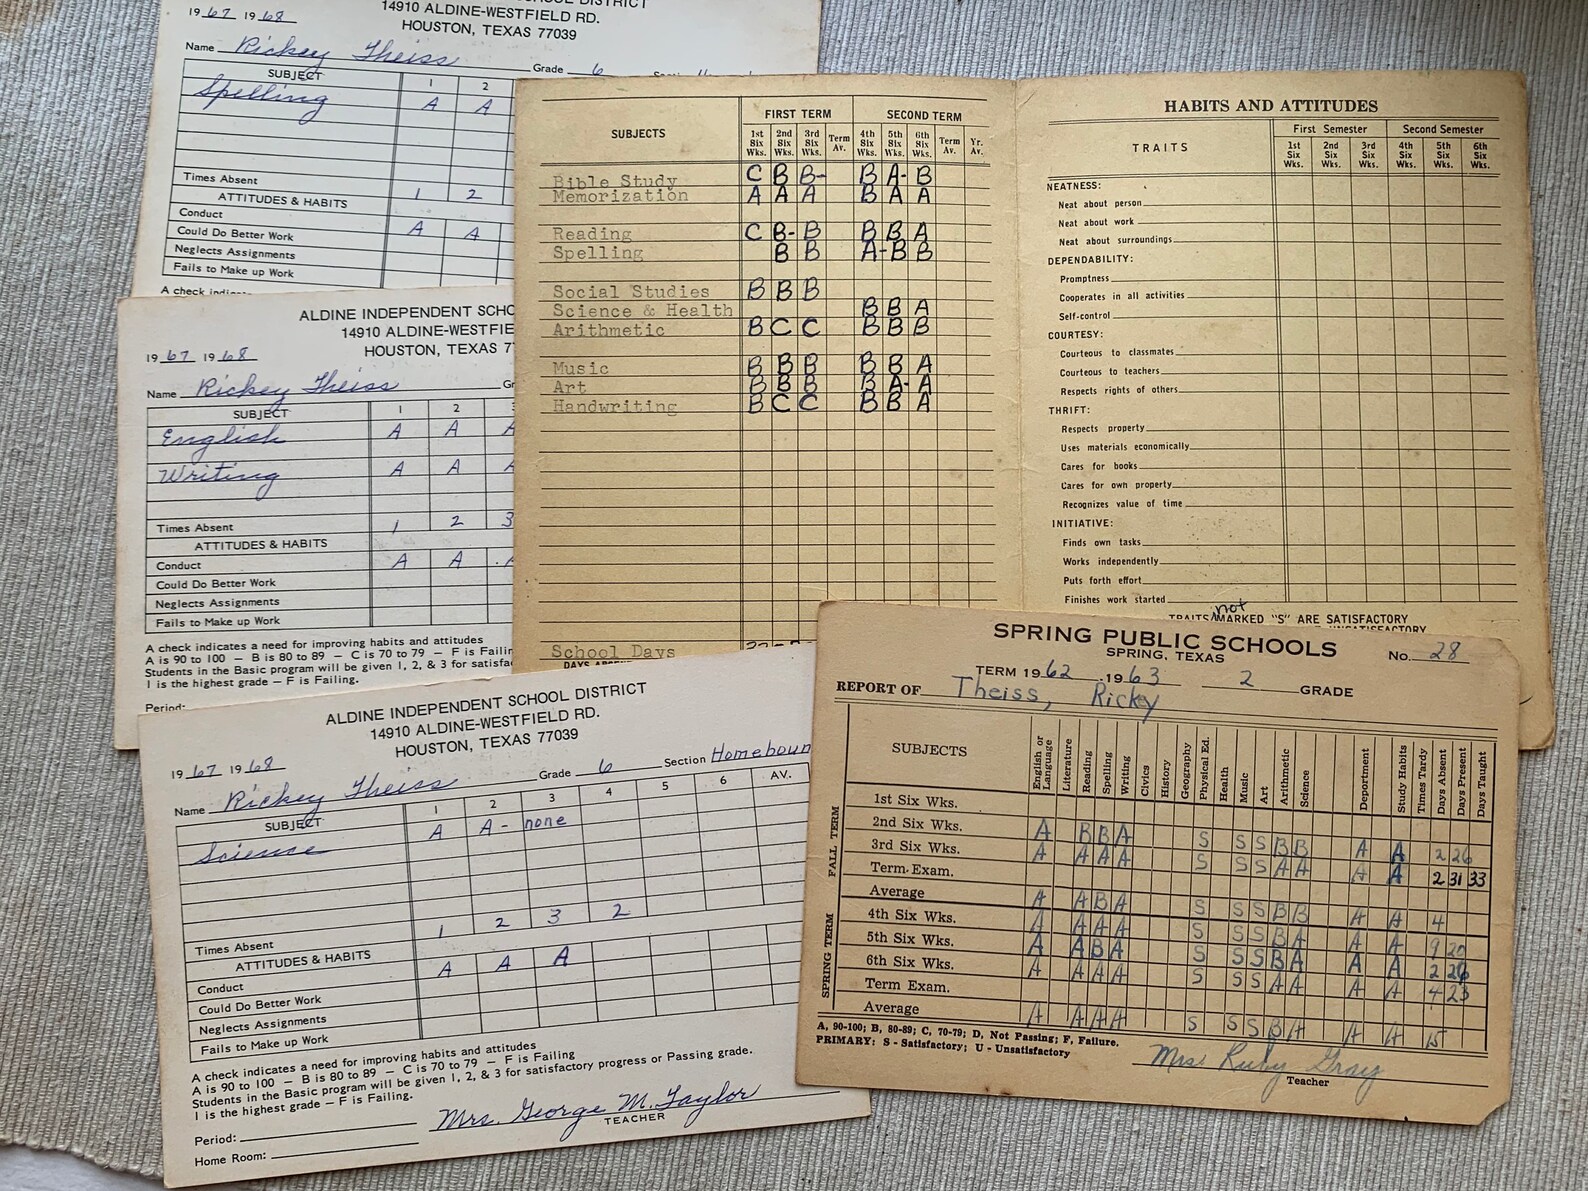 SCHOOL DISTRICT
14910 ALDINE-WESTFIELD RD.
HOUSTON, TEXAS 77039
19 67 19 68
Name Rickey Theiss Grade 6
SUBJECT 1 2
Spelling A A
Times Absent
ATTITUDES & HABITS 1 2
Conduct
Could Do Better Work A A
Neglects Assignments
Fails to Make up Work
A check
ALDINE INDEPENDENT
14910 ALDINE-WESTFIE
HOUSTON, TEXAS
19 67 19 68
Name Rickey Theiss
SUBJECT 1 2
English A A A
Writing A A A
Times Absent 1 2 3
ATTITUDES & HABITS
Conduct A A
Could Do Better Work
Neglects Assignments
Fails to Make up Work
A check indicates a need for improving habits and attitudes
A is 90 to 100 — B is 80 to 89 — C is 70 to 79 — F is
Students in the Basic program will be given 1, 2, & 3 for
1 is the highest grade — F is Failing.
Period:
ALDINE INDEPENDENT SCHOOL DISTRICT
14910 ALDINE-WESTFIELD RD.
HOUSTON, TEXAS 77039
19 67 19 68
Name Rickey Theiss Grade 6 Section Homeboun
SUBJECT 1 2 3 4 5 6 AV.
Science A A- none
Times Absent 1 2 3 2
ATTITUDES & HABITS
Conduct A A A
Could Do Better Work
Neglects Assignments
Fails to Make up Work
A check indicates a need for improving habits and attitudes
A is 90 to 100 — B is 80 to 89 — C is 70 to 79 — F is Failing
Students in the Basic program will be given 1, 2, & 3 for satisfactory progress or Passing grade.
1 is the highest grade — F is Failing.
Mrs. George M. Taylor
TEACHER
Period:
Home Room:
SUBJECTS FIRST TERM SECOND TERM
1st Six Wks. 2nd Six Wks. 3rd Six Wks. Term Av. 4th Six Wks. 5th Six Wks. 6th Six Wks. Term Av. Yr. Av.
Bible Study C B B- B A- B
Memorization A A A B A A
Reading C B- B B B A
Spelling B B A- B B
Social Studies B B B
Science & Health B B A
Arithmetic B C C B B B
Music B B B B B A
Art B B B B A- A
Handwriting B C C B B A
School Days
HABITS AND ATTITUDES
TRAITS First Semester Second Semester
1st Six Wks. 2nd Six Wks. 3rd Six Wks. 4th Six Wks. 5th Six Wks. 6th Six Wks.
NEATNESS:
Neat about person
Neat about work
Neat about surroundings
DEPENDABILITY:
Promptness
Cooperates in all activities
Self-control
COURTESY:
Courteous to classmates
Courteous to teachers
Respects rights of others
THRIFT:
Respects property
Uses materials economically
Cares for books
Cares for own property
Recognizes value of time
INITIATIVE:
Finds own tasks
Works independently
Puts forth effort
Finishes work started
TRAITS not MARKED "S" ARE SATISFACTORY
UNSATISFACTORY
SPRING PUBLIC SCHOOLS
SPRING, TEXAS
No. 28
TERM 19 62 19 63 2 GRADE
REPORT OF Theiss, Ricky
SUBJECTS English or Language Literature Reading Spelling Writing Civics History Geography Physical Ed. Health Music Art Arithmetic Science Deportment Study Habits Times Tardy Days Absent Days Present Days Taught
FALL TERM
1st Six Wks.
2nd Six Wks. A B B A S S S B B A A 2 26
3rd Six Wks. A A A A S S S A A A A 2 31 33
Term Exam.
Average A A B A S S S B B A A 4
SPRING TERM
4th Six Wks. A A A A S S S B A A A 9 20
5th Six Wks. A A B A S S S B A A A 2 26
6th Six Wks. A A A A S S S A A A A 4 23
Term Exam.
Average A A A A S S S B A A A 15
A, 90-100; B, 80-89; C, 70-79; D, Not Passing; F, Failure.
PRIMARY: S - Satisfactory; U - Unsatisfactory
Mrs Ruby Gray
Teacher